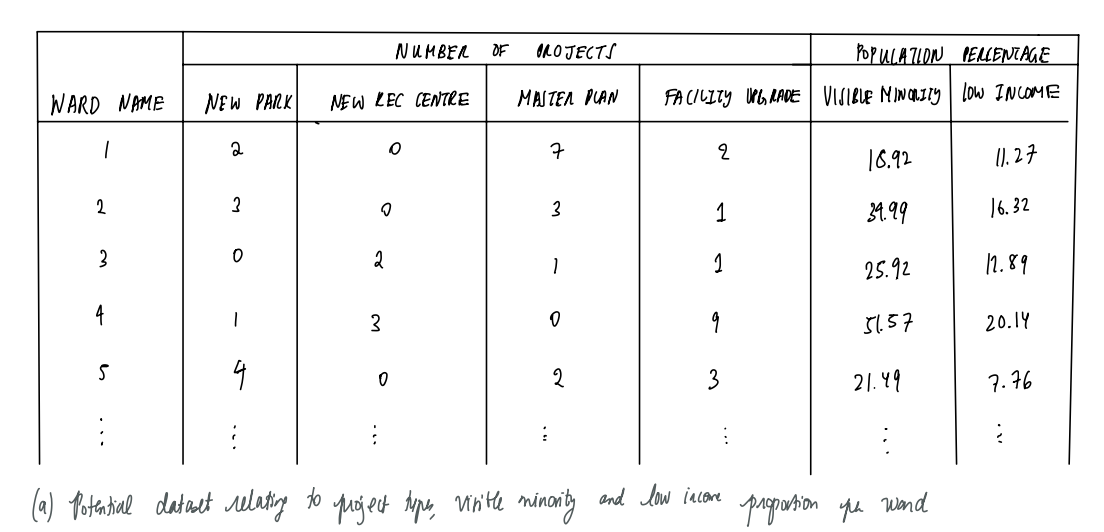 NUMBER OF PROJECTS POPULATION PERCENTAGE
WARD NAME NEW PARK NEW REC CENTRE MASTER PLAN FACILITY UPGRADE VISIBLE MINORITY LOW INCOME
1 2 0 7 2 18.92 11.27
2 3 0 3 1 39.99 16.32
3 0 2 1 1 25.92 12.89
4 1 3 0 9 51.57 20.14
5 4 0 2 3 21.49 7.76
⋮ ⋮ ⋮ ⋮ ⋮ ⋮ ⋮
(a) Potential dataset relating to project type, visible minority and low income proportion per ward